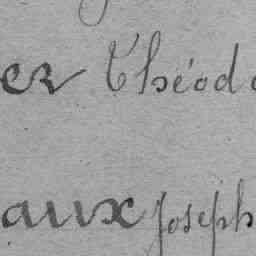 er Théod
aux Joseph